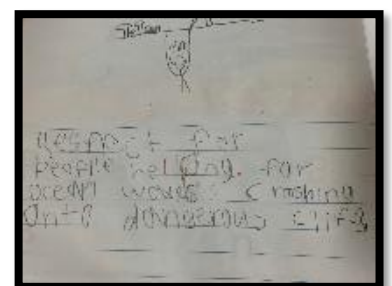 people helping. for
ocean waves crashing
onto dangerous cliffs